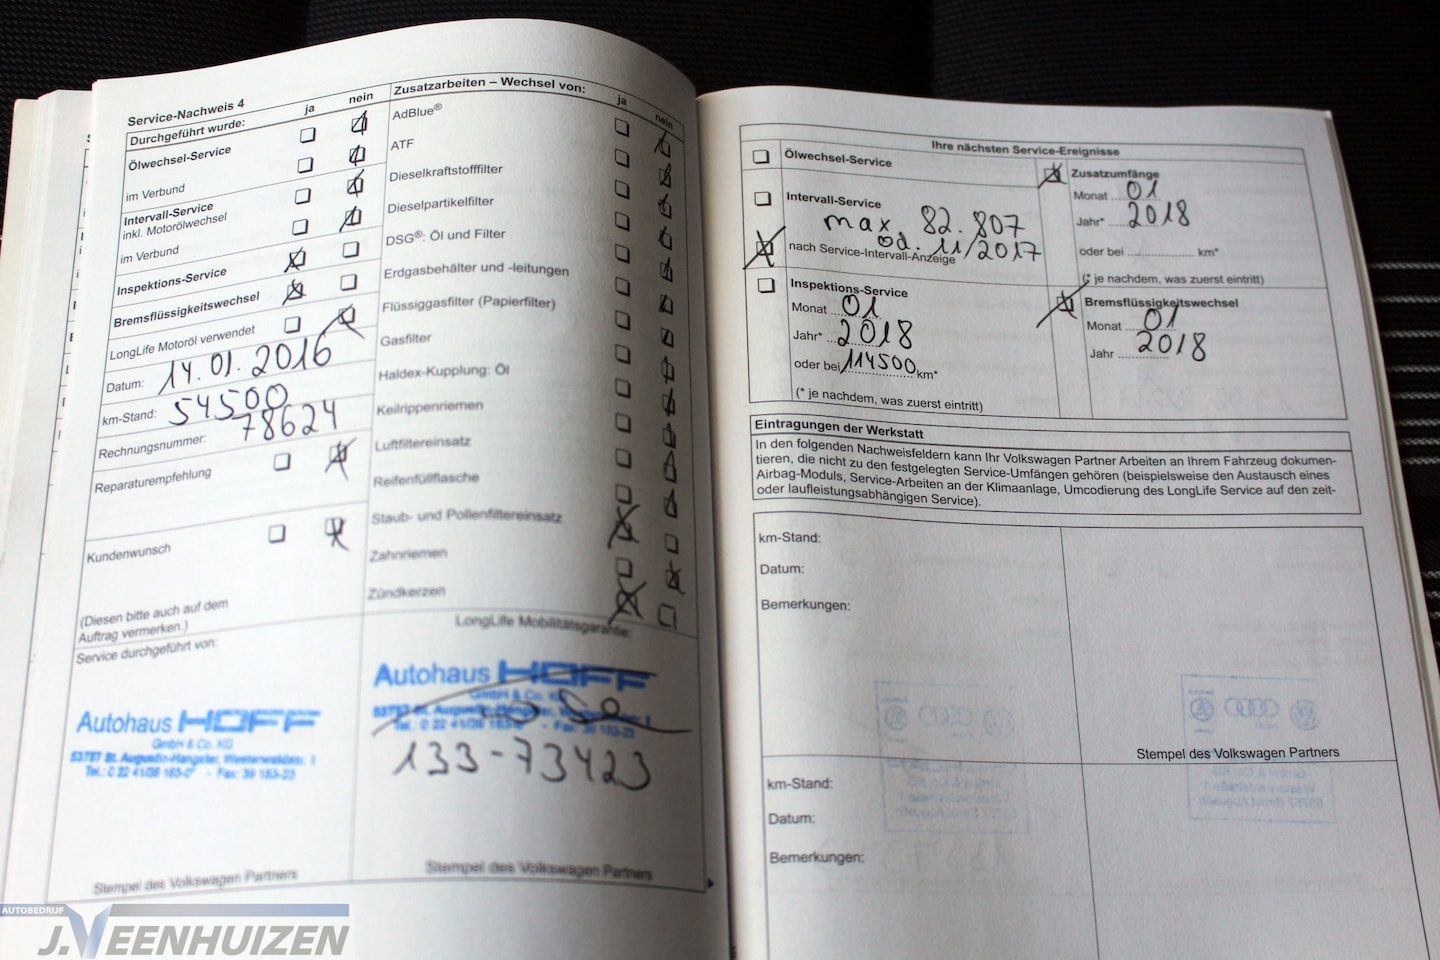 Service-Nachweis 4
Durchgeführt wurde: ja nein
Ölwechsel-Service
im Verbund
Intervall-Service
inkl. Motorölwechsel
im Verbund
Inspektions-Service
Bremsflüssigkeitswechsel
LongLife Motoröl verwendet
Datum: 14.01.2016
km-Stand: 54500
Rechnungsnummer: 78624
Reparaturempfehlung
Kundenwunsch
(Diesen bitte auch auf dem
Auftrag vermerken.)
Service durchgeführt von:
Autohaus HOFF
GmbH & Co. KG
53757 St. Augustin-Hangelar, Westerwaldstr. 1
Tel.: 0 22 41/39 183-0 - Fax: 39 183-23
Stempel des Volkswagen Partners
Zusatzarbeiten – Wechsel von: ja nein
AdBlue®
ATF
Dieselkraftstofffilter
Dieselpartikelfilter
DSG®: Öl und Filter
Erdgasbehälter und -leitungen
Flüssiggasfilter (Papierfilter)
Gasfilter
Haldex-Kupplung: Öl
Keilrippenriemen
Luftfiltereinsatz
Reifenfüllflasche
Staub- und Pollenfiltereinsatz
Zahnriemen
Zündkerzen
LongLife Mobilitätsgarantie:
Autohaus HOFF
GmbH & Co. KG
53757 St. Augustin-Hangelar, Westerwaldstr. 1
Tel.: 0 22 41/39 183-0 - Fax: 39 183-23
133-73423
Stempel des Volkswagen Partners
Ihre nächsten Service-Ereignisse
Ölwechsel-Service
Intervall-Service
max 82.807
od. 11/2017
nach Service-Intervall-Anzeige
Inspektions-Service
Monat 01
Jahr* 2018
oder bei 114500 km*
(* je nachdem, was zuerst eintritt)
Zusatzumfänge
Monat 01
Jahr* 2018
oder bei km*
(* je nachdem, was zuerst eintritt)
Bremsflüssigkeitswechsel
Monat 01
Jahr 2018
Eintragungen der Werkstatt
In den folgenden Nachweisfeldern kann Ihr Volkswagen Partner Arbeiten an Ihrem Fahrzeug dokumen-
tieren, die nicht zu den festgelegten Service-Umfängen gehören (beispielsweise den Austausch eines
Airbag-Moduls, Service-Arbeiten an der Klimaanlage, Umcodierung des LongLife Service auf den zeit-
oder laufleistungsabhängigen Service).
km-Stand:
Datum:
Bemerkungen:
Stempel des Volkswagen Partners
km-Stand:
Datum:
Bemerkungen:
AUTOBEDRIJF
J.VEENHUIZEN